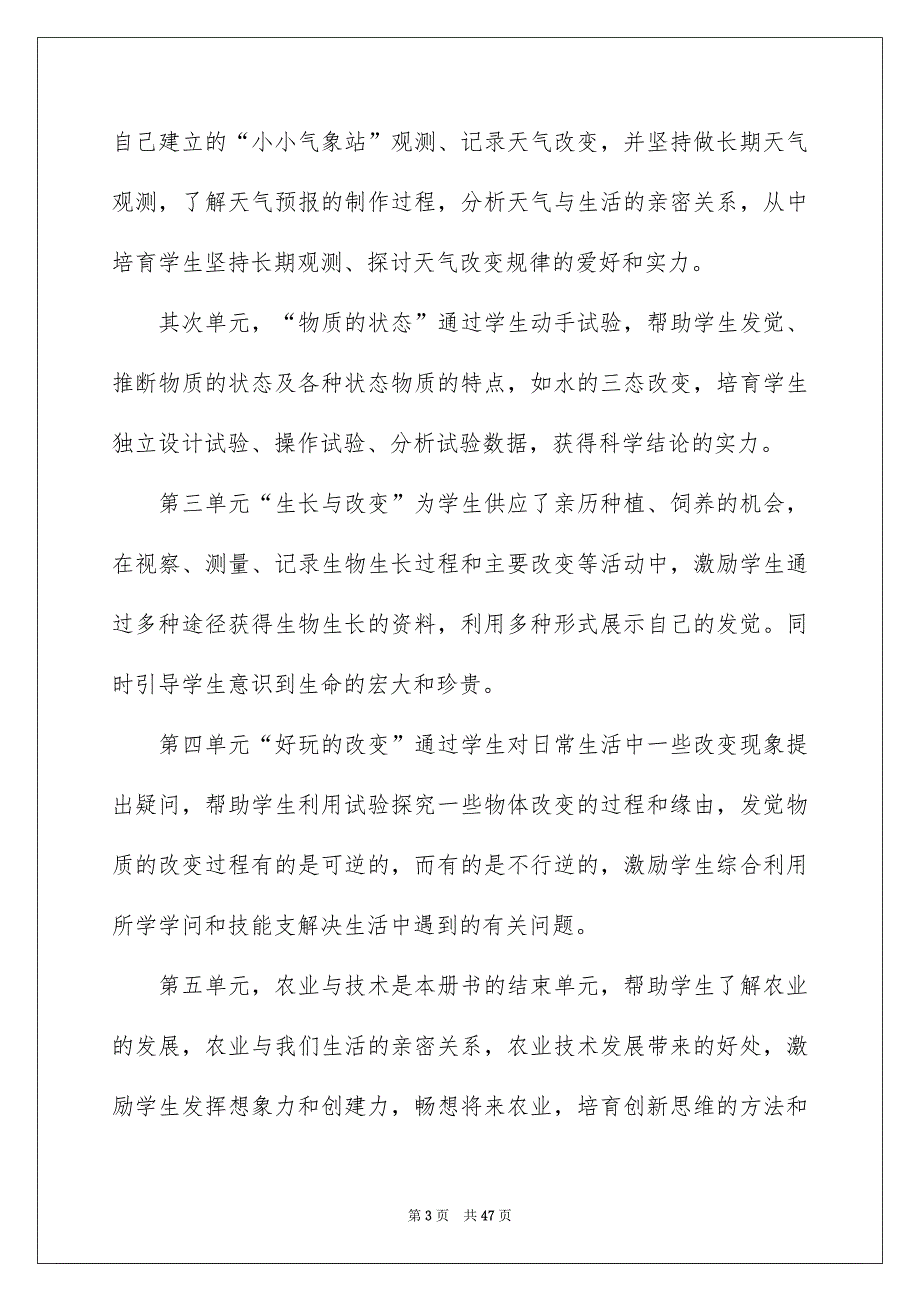 自己建立的“小小气象站”观测、记录天气改变，并坚持做长期天气
观测，了解天气预报的制作过程，分析天气与生活的亲密关系，从中
培育学生坚持长期观测、探讨天气改变规律的爱好和实力。
其次单元，“物质的状态”通过学生动手试验，帮助学生发觉、
推断物质的状态及各种状态物质的特点，如水的三态改变，培育学生
独立设计试验、操作试验、分析试验数据，获得科学结论的实力。
第三单元“生长与改变”为学生供应了亲历种植、饲养的机会，
在视察、测量、记录生物生长过程和主要改变等活动中，激励学生通
过多种途径获得生物生长的资料，利用多种形式展示自己的发觉。同
时引导学生意识到生命的宏大和珍贵。
第四单元“好玩的改变”通过学生对日常生活中一些改变现象提
出疑问，帮助学生利用试验探究一些物体改变的过程和缘由，发觉物
质的改变过程有的是可逆的，而有的是不行逆的，激励学生综合利用
所学学问和技能支解决生活中遇到的有关问题。
第五单元，农业与技术是本册书的结束单元，帮助学生了解农业
的发展，农业与我们生活的亲密关系，农业技术发展带来的好处，激
励学生发挥想象力和创建力，畅想将来农业，培育创新思维的方法和
第 3 页 共 47 页